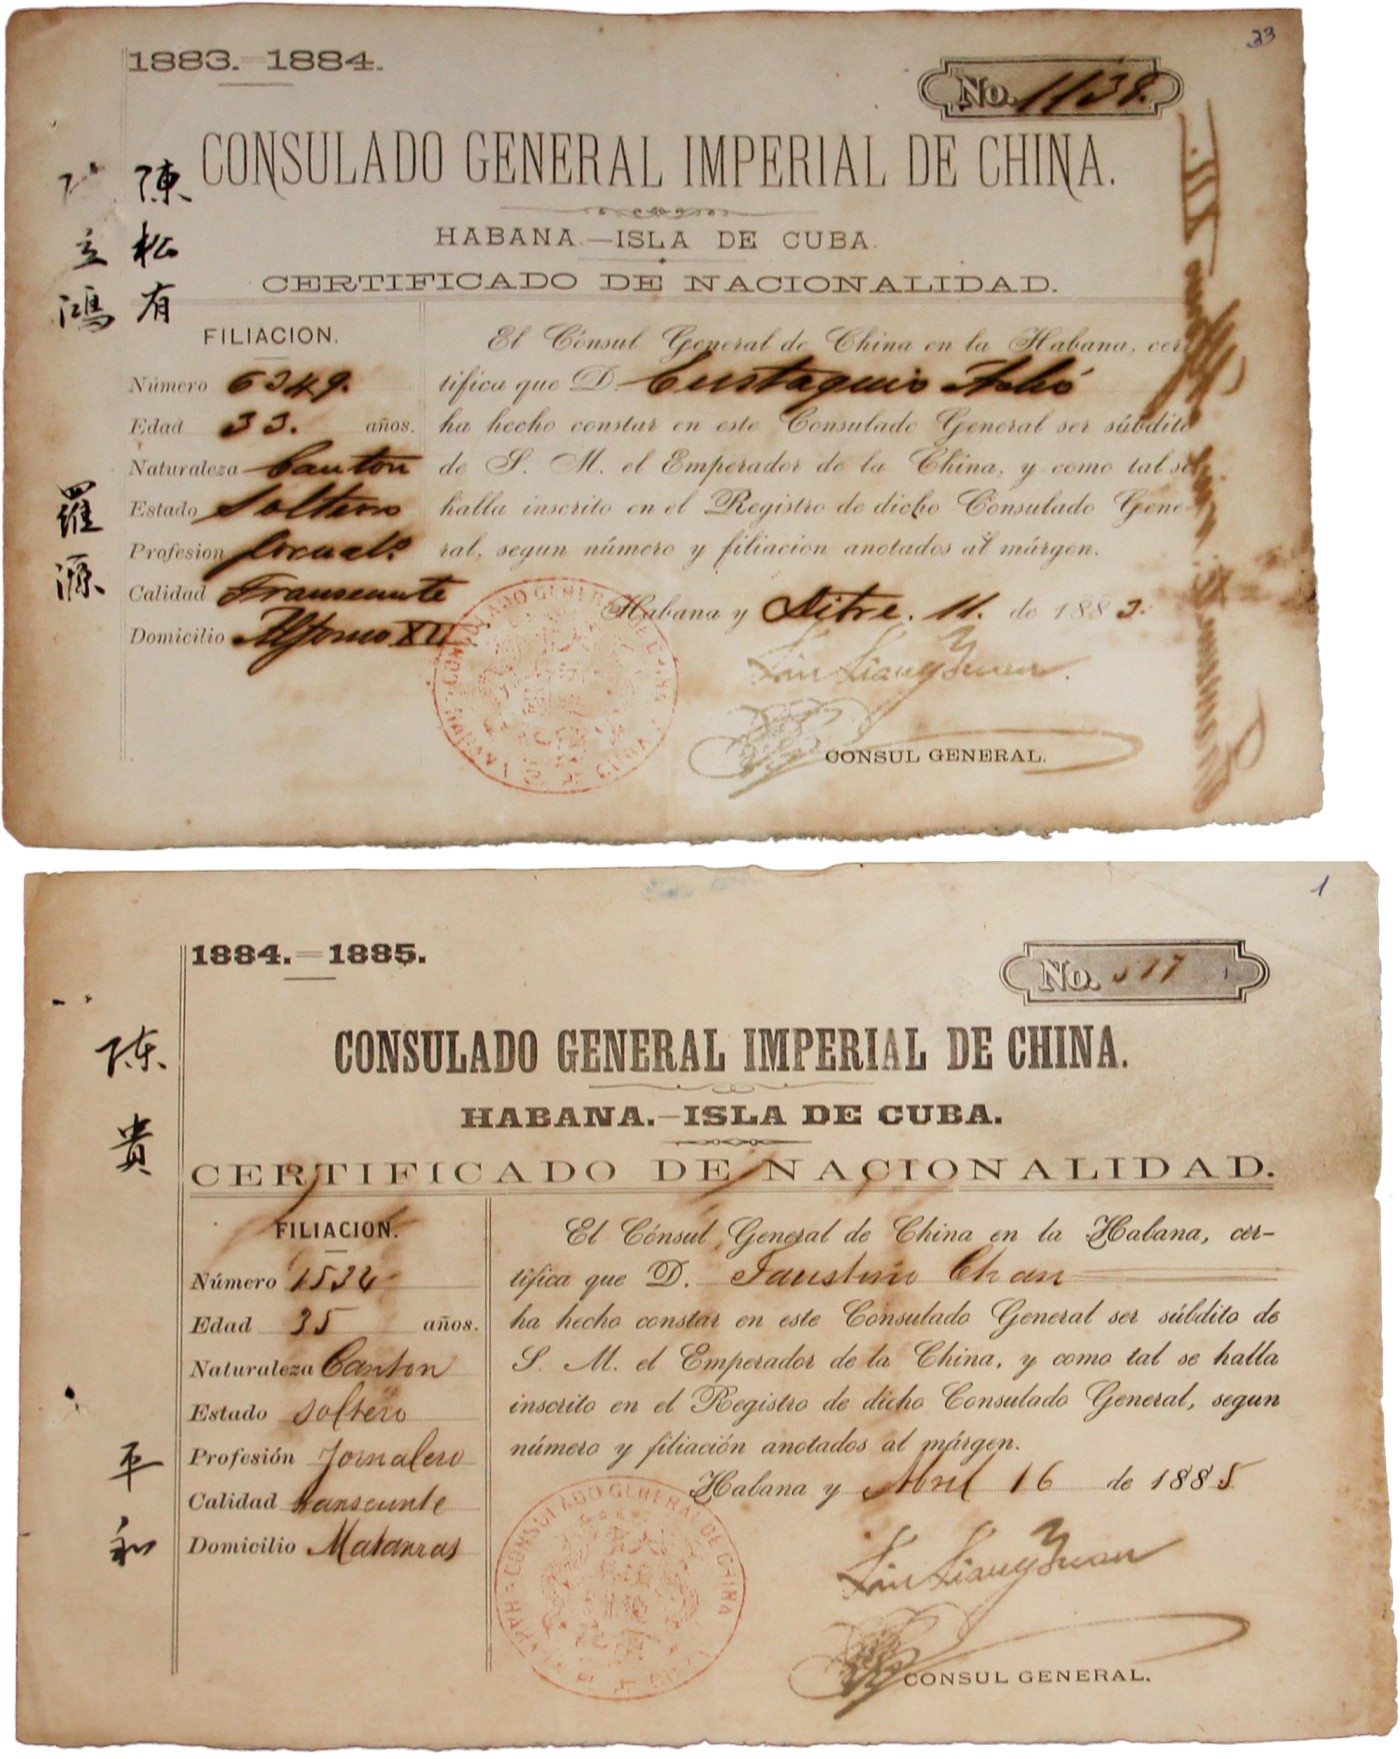 33
1883.—1884.
No. 1138.
陳松有
立鴻
羅源
CONSULADO GENERAL IMPERIAL DE CHINA.
HABANA.—ISLA DE CUBA.
CERTIFICADO DE NACIONALIDAD.
FILIACION.
Número 6349.
Edad 33. años.
Naturaleza Canton
Estado Soltero
Profesion
Calidad Transeunte
Domicilio Alfonso XII
El Cónsul General de China en la Habana, cer-
tifica que D. Eustaquio
ha hecho constar en este Consulado General ser súbdito
de S. M. el Emperador de la China, y como tal se
halla inscrito en el Registro de dicho Consulado Gene-
ral, segun número y filiacion anotados al márgen.
Habana y Dibre. 11. de 1883.
Liu Liang Yuan
CONSUL GENERAL.
CONSULADO GENERAL DE CHINA
HABANA
1
1884.—1885.
No. 577
陈貴
平和
CONSULADO GENERAL IMPERIAL DE CHINA.
HABANA.—ISLA DE CUBA.
CERTIFICADO DE NACIONALIDAD.
FILIACION.
Número 1534
Edad 35 años.
Naturaleza Canton
Estado soltero
Profesión Jornalero
Calidad transeunte
Domicilio Matanzas
El Cónsul General de China en la Habana, cer-
tifica que D. Faustino Chan
ha hecho constar en este Consulado General ser súbdito de
S. M. el Emperador de la China, y como tal se halla
inscrito en el Registro de dicho Consulado General, segun
número y filiación anotados al márgen.
Habana y Abril 16 de 1885
Liu Liang Yuan
CONSUL GENERAL.
CONSULADO GENERAL DE CHINA
HABANA